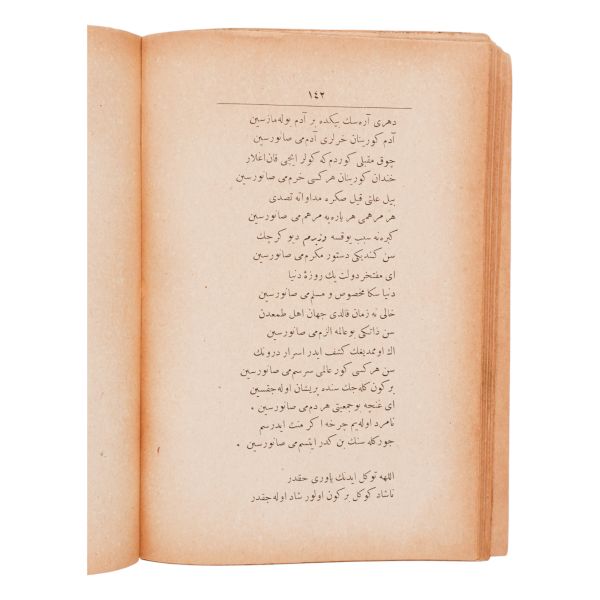 ١٤٢
دهری آره‌سك بیكده بر آدم بوله‌مازسین
آدم كورینان خرلری آدم‌می صانورسین
چوق مقبلی كوردم كه كولر ایچی قان اغلار
خندان كورینان هر كسی خرم‌می صانورسین
بیل علتی قیل صكره مداواته تصدی
هر مرهمی هر یاره‌یه مرهم‌می صانورسین
كبره نه سبب یوقسه وزیرم دیو كرچك
سن كندیكی دستور مكرم‌می صانورسین
ای مفتخر دولت یك روزهٔ دنیا
دنیا سكا مخصوص و مسلم‌می صانورسین
خالی نه زمان قالدی جهان اهل طمعدن
سن ذاتكی بو عالمه الزم‌می صانورسین
اك اومدیغك كشف ایدر اسرار درونك
سن هر كسی كور عالمی سرسم‌می صانورسین
بر كون كله‌جك سنده پریشان اوله‌جقسین
ای غنچه بو جمعیتی هر دم‌می صانورسین .
نامرد اوله‌یم چرخه اكر منت ایدرسم
جورکله سنك بن كدر ایتسم‌می صانورسین .
اللهه توكل ایدنك یاوری حقدر
ناشاد كوكل بر كون اولور شاد اوله‌جقدر